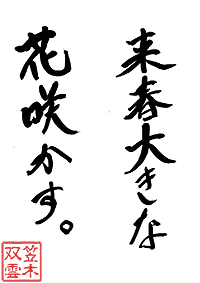 来春大きな
花咲かす。
笠木
双雲